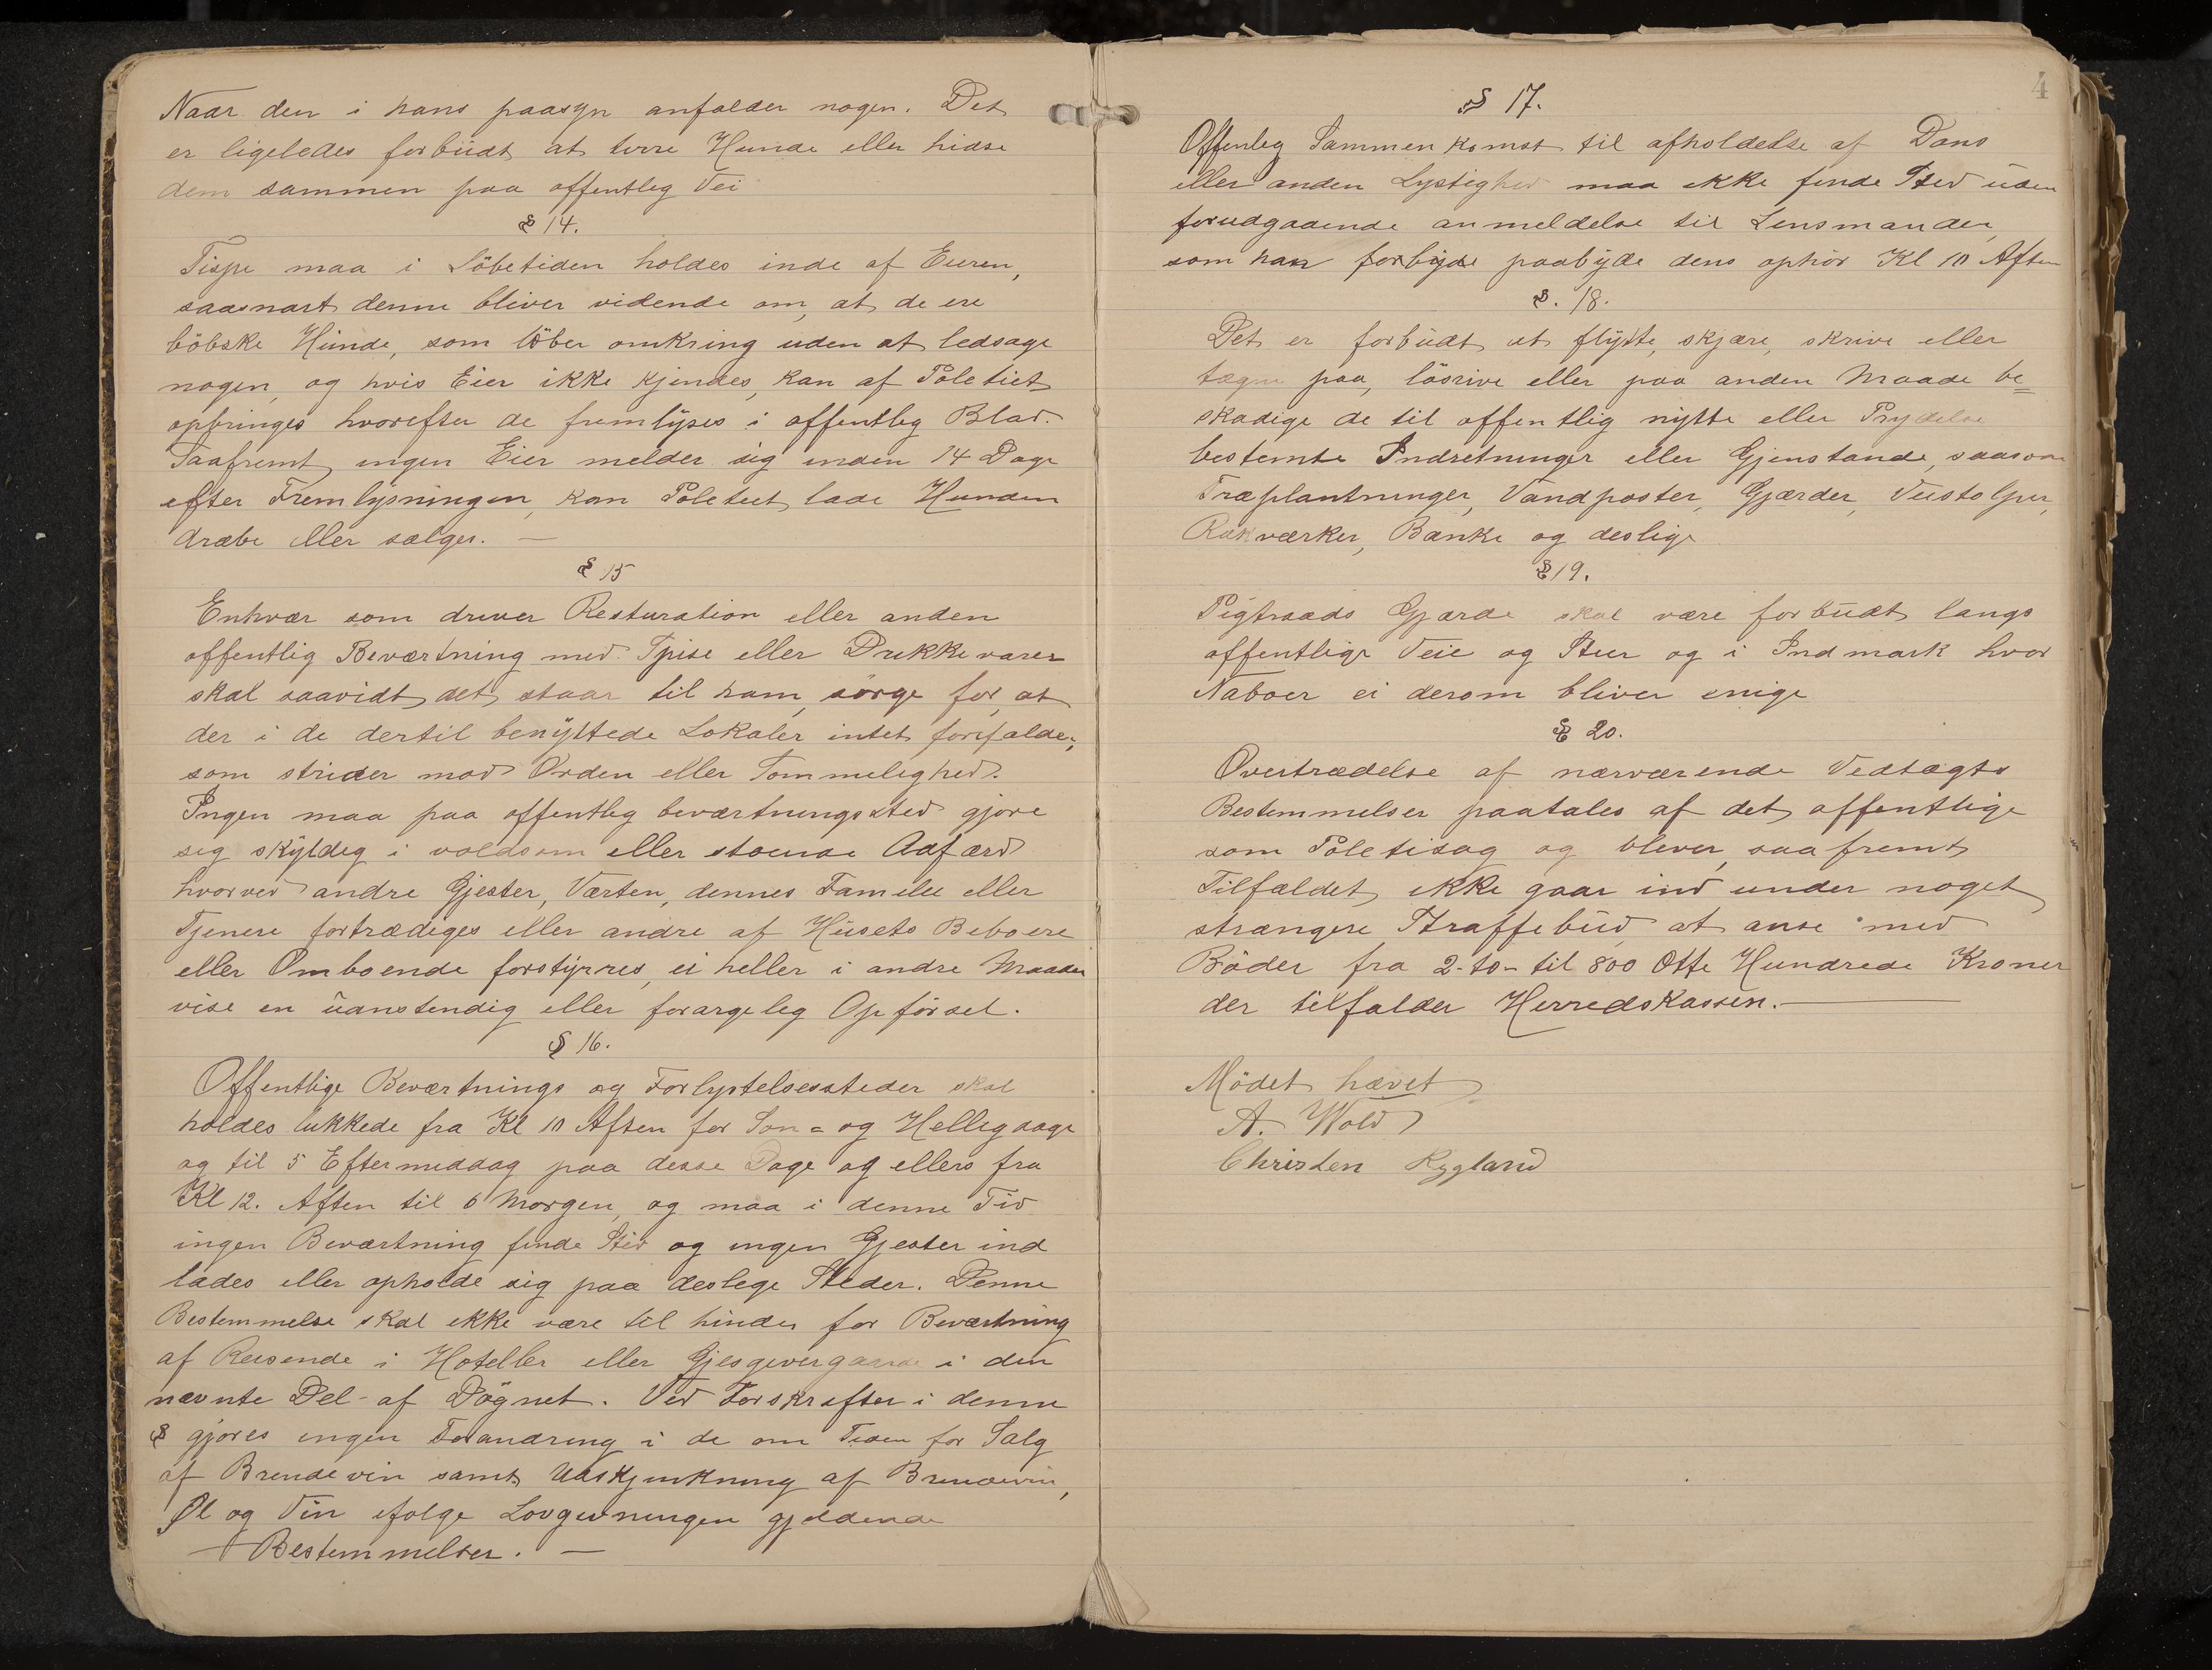 Naar den i hans paasyn anfalder nogen. Det
er ligeledes forbüdt at terre Hunde eller hidse
dem sammen paa offentleg Vei
§ 14.
Tispe maa i Löbetiden holdes inde af Eieren,
saasnart denne bliver vidende om, at de ere
böbske Hünde, som löber omkring uden at ledsage
nogen, og hvis Eier ikke kjendes, kan af Poletiet
opbringes hvorefter de fremlyses i offentleg Blad.
Saafremt ingen Eier melder sig inden 14 Dage
efter Fremlysningen, kan Poletiet lade Hunden
dræbe eller sælges. —
§ 15
Enhvær som driver Resturation eller anden
offentlig Beværtning med Spise eller Drikkevarer
skal saavidt det staar til ham, sörge for, at
der i de dertil benyttede Lokaler intet forefalder,
som strider mod Orden eller Sømmelighed.
Ingen maa paa offentleg beværtningssted gjøre
seg skyldeg i voldsom eller støiende Adfærd
hvorved andre Gjester, Værten, dennes Familie eller
Tjenere fortrædiges eller andre af Hüsets Beboere
eller Omboende forstyrres, ei heller i andre Maader
vise en üanstendig eller forargeleg Opförsel.
§ 16.
Offentlige Beværtnings og Forlystelsessteder skal
holdes lukkede fra Kl 10 Aften før Søn= og Helligdage
og til 5 Eftermiddag paa desse Dage og ellers fra
Kl 12. Aften til 6 Morgen, og maa i denne Tid
ingen Beværtning finde Sted og ingen Gjester ind
lades eller opholde sig paa deslege Steder. Denne
Bestemmelse skal ikke være til hinder for Beværtning
af Reisende i Hoteller eller Gjesgivergaarde i den
nævnte Del af Dögnet. Ved Forskrifter i denne
§ gjøres ingen Forandring i de om Tiden for Salg
af Brendevin samt Udskjenkning af Brendevin,
Øl og Vin ifølge Lovgivningen gjeldende
Bestemmelser. —
4
§ 17.
Offenleg Sammenkomst til afholdelse af Dans
eller anden Lystighed maa ikke finde Sted üden
forudgaaende anmeldelse til Lensmanden,
som kan forbyde paabyde dens ophör Kl 10 Aften
§. 18.
Det er forbüdt at flytte, skjære, skrive eller
tegne paa, lösrive eller paa anden Maade be=
skadige de til offentlig nytte eller Prydelse
bestemte Indretninger eller Gjenstande, saasom
Træplantninger, Vandposter, Gjærder, Veistolper,
Rækværker, Bænke og deslige
§ 19.
Pigtraads Gjærde skal være forbüdt langs
offentlige Veie og Stier og i Indmark hvor
Naboer ei derom bliver enige
§ 20.
Overtrædelse af nærværende Vedtægts
Bestemmelser paatales af det offentlige
som Poletisag og bliver, saafremt
Tilfældet ikke gaar ind under noget
strængere Straffebüd at anse med
Böder fra 2-to- til 800 Otte Hundrede Kroner
der tilfalder Herredskassen. —
Mödet hævet
A. Wold
Christen Rygland